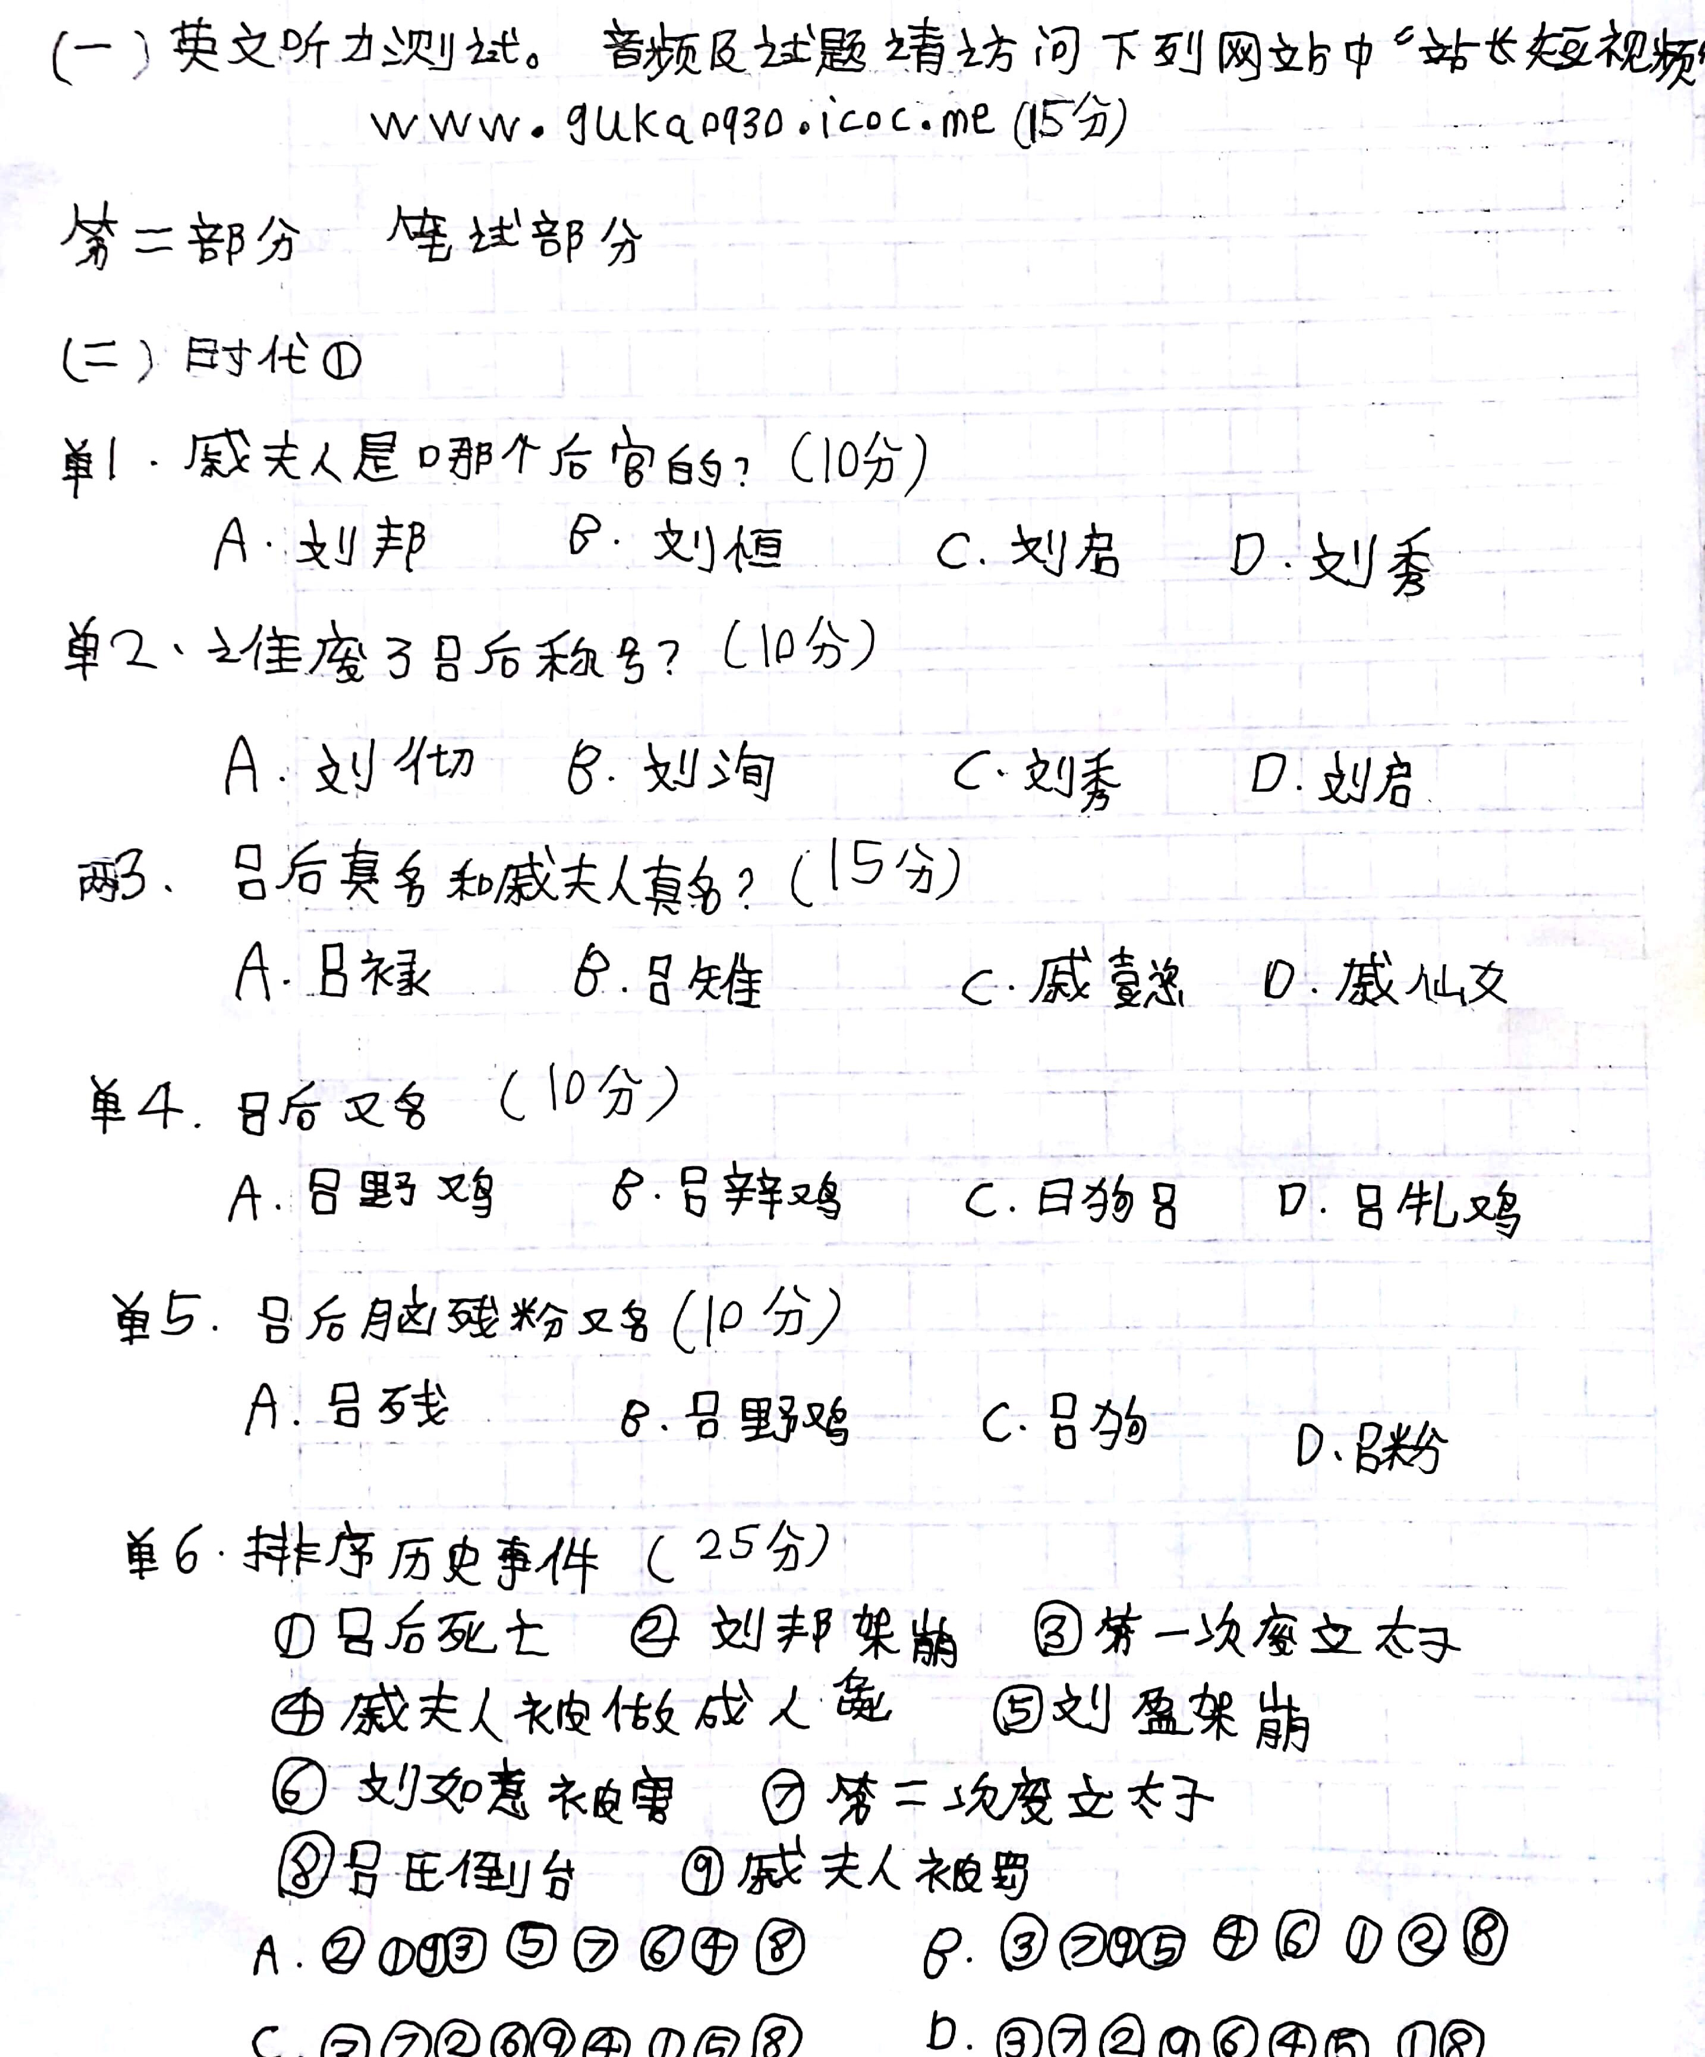 (一)英文听力测试。 音频及试题请访问下列网站中“站长短视频”
www.guka0930.icoc.me (15分)
第二部分 笔试部分
(二)时代①
单1.戚夫人是哪个后宫的?(10分)
A.刘邦 B.刘恒 C.刘启 D.刘秀
单2、谁废了吕后称号?(10分)
A.刘彻 B.刘询 C.刘秀 D.刘启
两3、吕后真名和戚夫人真名?(15分)
A.吕禄 B.吕雉 C.戚懿 D.戚仙女
单4.吕后又名 (10分)
A.吕野鸡 B.吕辩鸡 C.日狗吕 D.吕牝鸡
单5.吕后脑残粉又名(10分)
A.吕残 B.吕野鸡 C.吕狗 D、吕粉
单6.排序历史事件 (25分)
①吕后死亡 ②刘邦架崩 ③第一次废立太子
④戚夫人被做成人彘 ⑤刘盈架崩
⑥刘如意被害 ⑦第二次废立太子
⑧吕氏倒台 ⑨戚夫人被罚
A.②①⑨③⑤⑦⑥④⑧ B.③⑦⑨⑤④⑥①②⑧
C.③⑦②⑥⑨④①⑤⑧ D.③⑦②⑨⑥④⑤①⑧